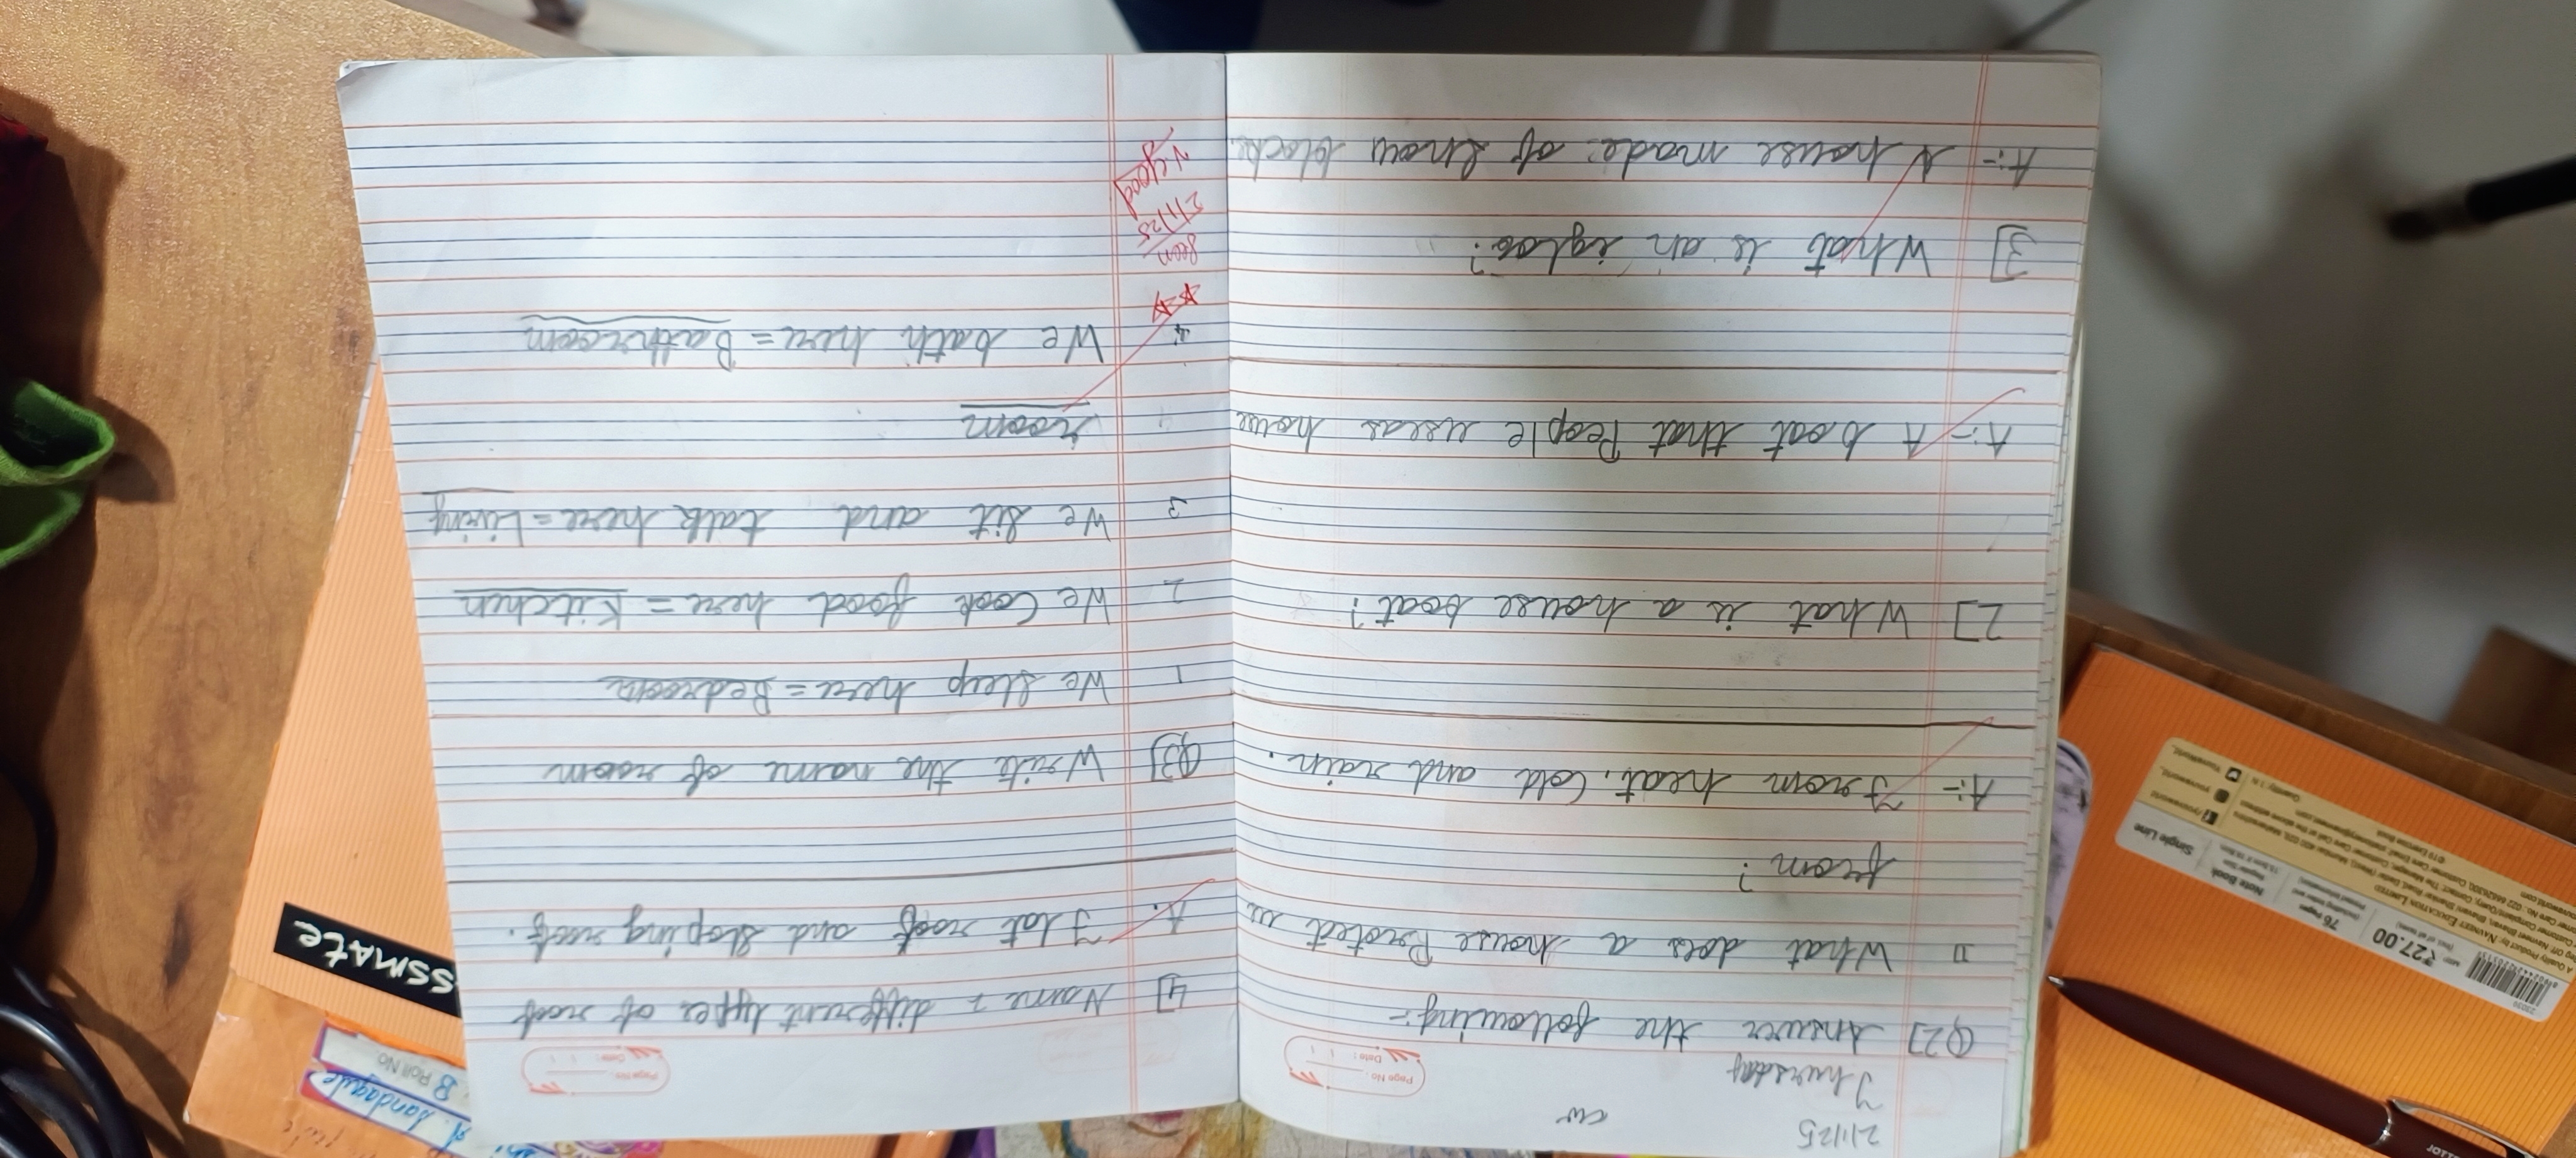 2/1/25
cw
Thursday
Page No :
Date :
Q2] Answer the following :-
1] What does a house Protect us
from?
A:- From heat, Cold and rain.
2] What is a house boat?
A:- A boat that People useas house
3] What is an igloo?
A:- A house made of snow blocks
Page No :
Date :
4] Name 2 different types of roof
A. Flat roof and Sloping roof.
Q3] Write the name of room
1 We sleep here = Bedroom
2 We Cook food here = Kitchen
3 We sit and talk here = Living
room
4 We bath here = Bathroom
Seen
2/1/25
V. Good
SSMATE
B Roll No
₹27.00
76 Pages
Note Book
Single Line